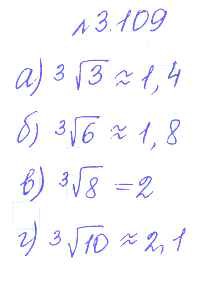 № 3.109
а) ³√3 ≈ 1,4
б) ³√6 ≈ 1,8
в) ³√8 = 2
г) ³√10 ≈ 2,1